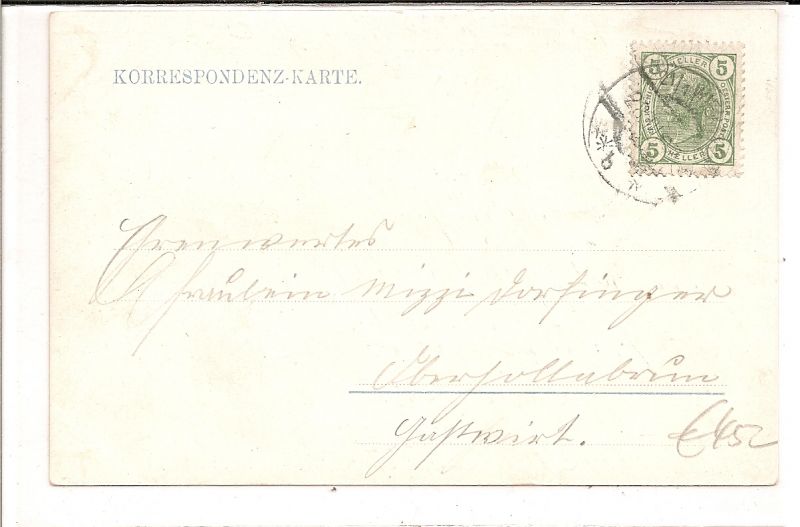 KORRESPONDENZ-KARTE.
5 HELLER 5
5 HELLER 5
Ehrenwertes
Fräulein Mizzi Dorfinger
Oberhollabrun
Gastwirt.